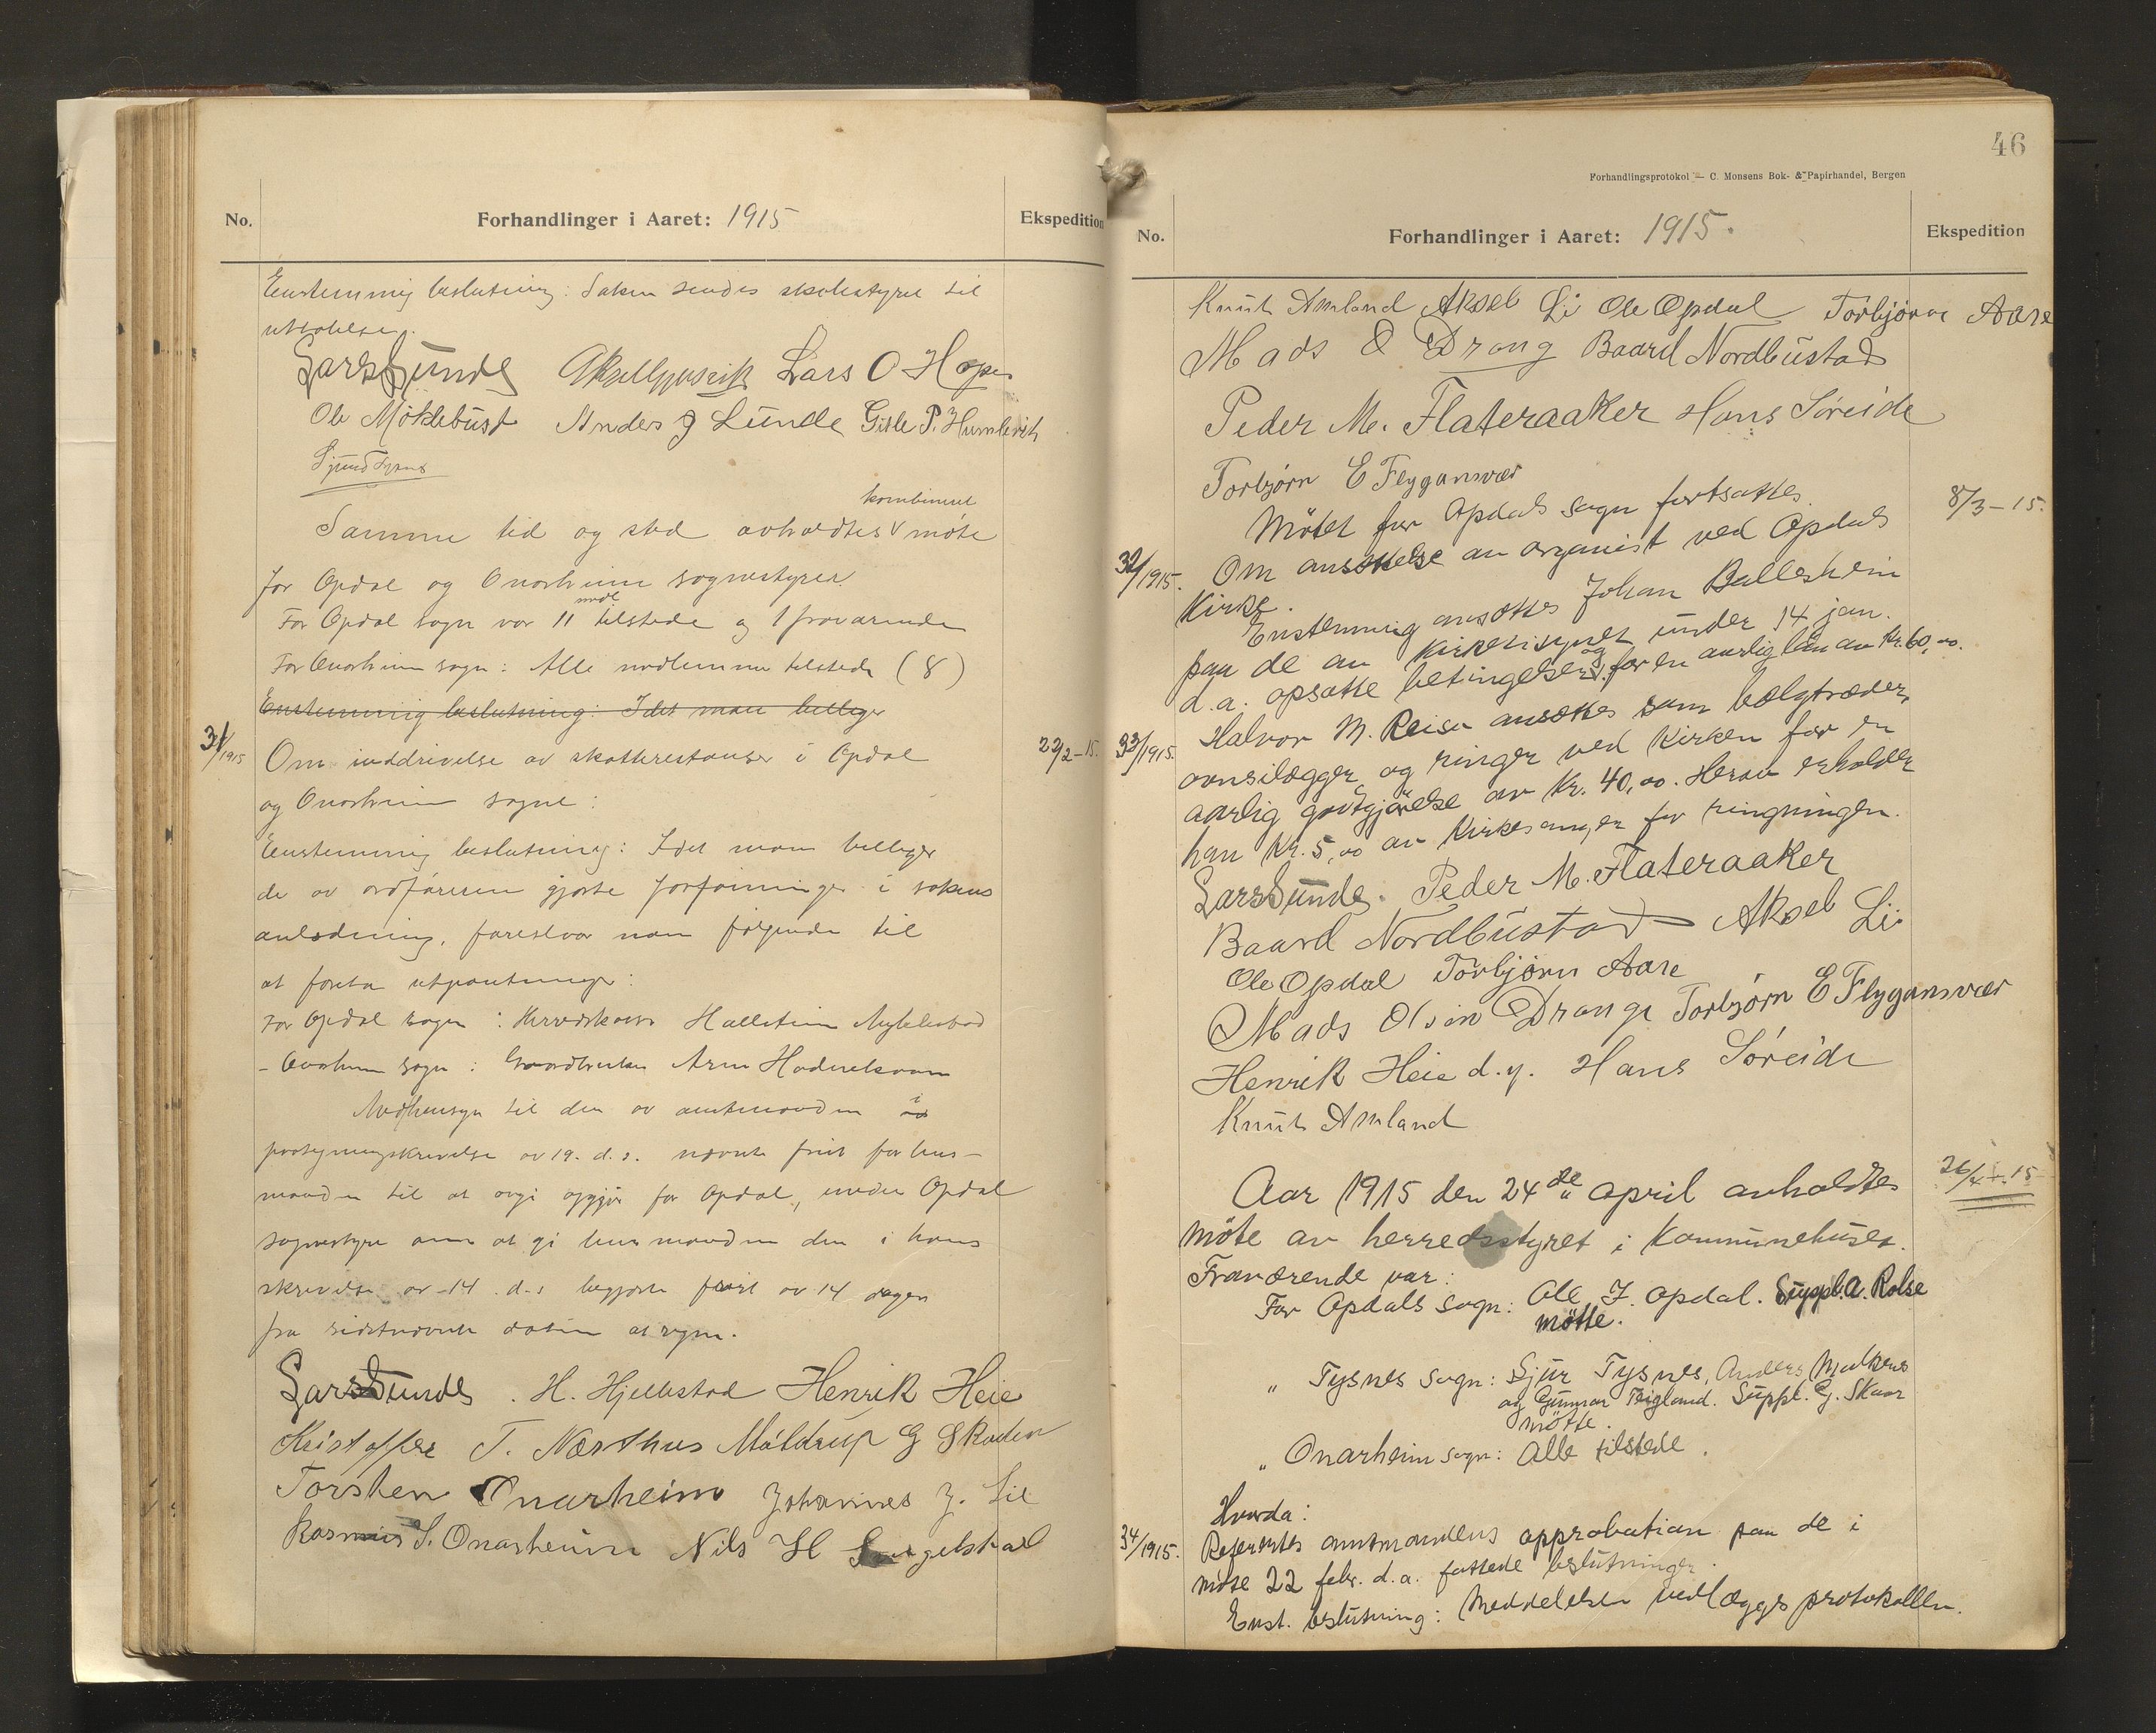 No.
Forhandlinger i Aaret: 1915
Ekspedition
Enstemmig beslutning: Saken sendes skolestyret til
uttalelse.
Lars Sunde Lars O Hope
Ole Möklebust Anders J Lunde Gisle P. Humlevik
Sjur Tysnes
kombinert
Samme tid og sted avholdtes v möte
for Opdal og Onarheim sognestyrer
medl
For Opdal sogn var 11 tilstede og 1 fraværende
For Onarheim sogn: Alle medlemmer tilstede (8)
Enstemmig beslutning: Idet man billiger
31/1915
Om inddrivelse av skatterestanser i Opdal
22/2-15.
og Onarheim sogne:
Enstemmig beslutning: Idet man billiger
de av ordföreren gjorte forföininger i sakens
anledning, foreslaar man fölgende til
at foreta utpantninger:
For Opdal sogn: Hallstein
- Onarheim sogn: Gaardbruker Arne
Medhensyn til den av amtmanden i
paategningsskrivelse av 19. d.s. nævnte frist for lens-
manden til at avgi opgjör for Opdal, under Opdal
sognestyre om at gi lensmanden den i hans
skrivelse av 14. d.s. begjærte frist av 14 dager
fra sidstnævnte datum at regne.
Lars Sunde. H. Hjellestad Henrik Heie
Kristoffer T. Næsthus Måldrup G Skaden
Torsten Onarheim Johannes J. Lie
Rasmus S. Onarheim Nils H
46
Forhandlingsprotokol — C. Monsens Bok- & Papirhandel, Bergen
No.
Forhandlinger i Aaret: 1915.
Ekspedition
Knut Amland Aksel Li Ole Opdal Torbjörn Aare
Mads O Drang Baard Nordbustad
Peder M. Flateraaker Hans Söreide
Torbjörn E Flygansvær
Mötet for Opdals sogn fortsattes.
8/3-15.
32/1915.
Om ansættelse av organist ved Opdals
Kirke.
Enstemmig ansættes Johan Ballesheim
paa de av Kirketilsynet under 14 jan.
d.a. opsatte betingelser og for en aarlig lön av Kr. 60,00.
33/1915.
Halvor M. Reisa ansættes som bælgtræder,
ovnsilægger og ringer ved Kirken for en
aarlig godtgjørelse av Kr. 40,00. Herav erholder
han Kr. 5,00 av Kirkesanger for ringningen.
Lars Sunde. Peder M. Flateraaker
Baard Nordbustad Aksel Li.
Ole Opdal Torbjörn Aare
Mads Olsen Drange Torbjörn E Flygansvær
Henrik Heie d.y. Hans Söreide
Knut Amland
Aar 1915 den 24de april avholdtes
26/4-15
möte av herredsstyret i Kommunehuset.
Fraværende var:
For Opdals sogn: Ole J. Opdal. Suppl. A. Rolse
mötte.
„ Tysnes sogn: Sjur Tysnes, Anders
og Gunnar Teigland. Suppl. G. Skaar
mötte.
„ Onarheim sogn: Alle tilstede.
Hvorda:
34/1915.
Refertes amtmandens approbation paa de i
möte 22 febr. d.a. fattede beslutninger.
Enst. beslutning: Meddelelsen vedlægges protokollen.